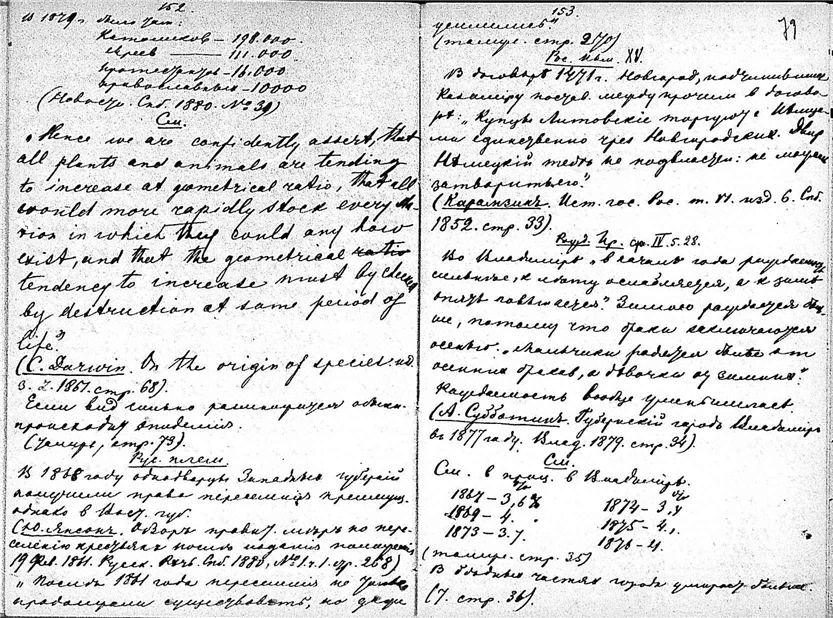 152.
въ 1879 г. было там:
Католиков – 198.000.
Евреев – 111.000
Протестантов – 16.000
православных – 10000
(Новости. Спб. 1880. № 39)
См.
„Hence we are confidently assert, that
all plants and animals are tending
to increase at gometrical ratio, that all
would more rapidly stock every sta-
tion in which they could any how
exist, and that the geometrical ratio
tendency to increase must by checked
by destruction at some period of
life."
(C. Darwin. On the origin of species. изд.
3. 1861. стр. 68).
Если вид сильно размножился обыкн.
происходит эпидемия.
(тамже, стр. 73).
Рус. плем
В 1868 году однодворцы Западных губерний
получили право переселения
однако в Вост. губ.
(Ю. Янсон. Обзоръ правит. мѣръ по пере-
селению крестьян послѣ издания положения
19 Фев. 1861. Русск. Рѣчь. Спб. 1880, № 1. ч. 1. стр. 268)
„Послѣ 1861 года переселения не
продолжали существовать, но даже
153.
79
усилились"
(тамже. стр. 270)
Рос. XV.
В договорѣ 1471 г. Новгород, подчинившись
Казимиру постав. между прочим в догово-
рѣ: „Купцы Литовские торгуют с Нѣмца-
ми единственно чрез Новгородских. Двор
Нѣмецкий тебѣ не подвластен: не можешь
затворить его."
(Карамзинъ. Ист. гос. Рос. т. VI. изд. 6. Спб.
1852. стр. 33).
ср. IV. 5. 28.
Во Владимірѣ „в началѣ года рождаемость
сильнѣе, к лѣту ослабляется, а к зимѣ
опять повышается". Зимою рождается
ше, потому что браки заключаются
осенью. „Мальчики родятся болѣе от
осенних браков, а дѣвочки от зимних".
Рождаемость вообще уменьшилась.
(А. Субботинъ. Губернский городъ Владиміръ
въ 1877 году. Влад. 1879. стр. 34).
См.
См. в проц. в Владимірѣ.
1867 – 3,6 % 1874 – 3,4 %
1869 – 4. 1875 – 4.
1873 – 3.7. 1876 – 4.
(тамже. стр. 35)
В бѣдных частях города умирает болѣе.
(т. стр. 36).